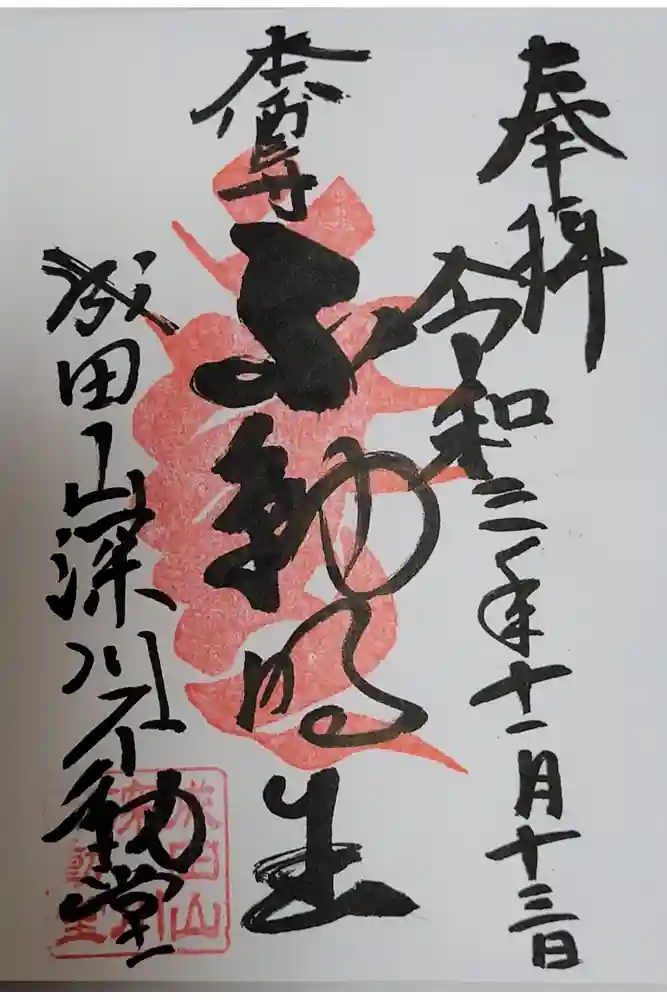 奉拝
令和二年十一月十三日
本尊
不動明王
成田山深川不動堂
成田山
深川
不動堂